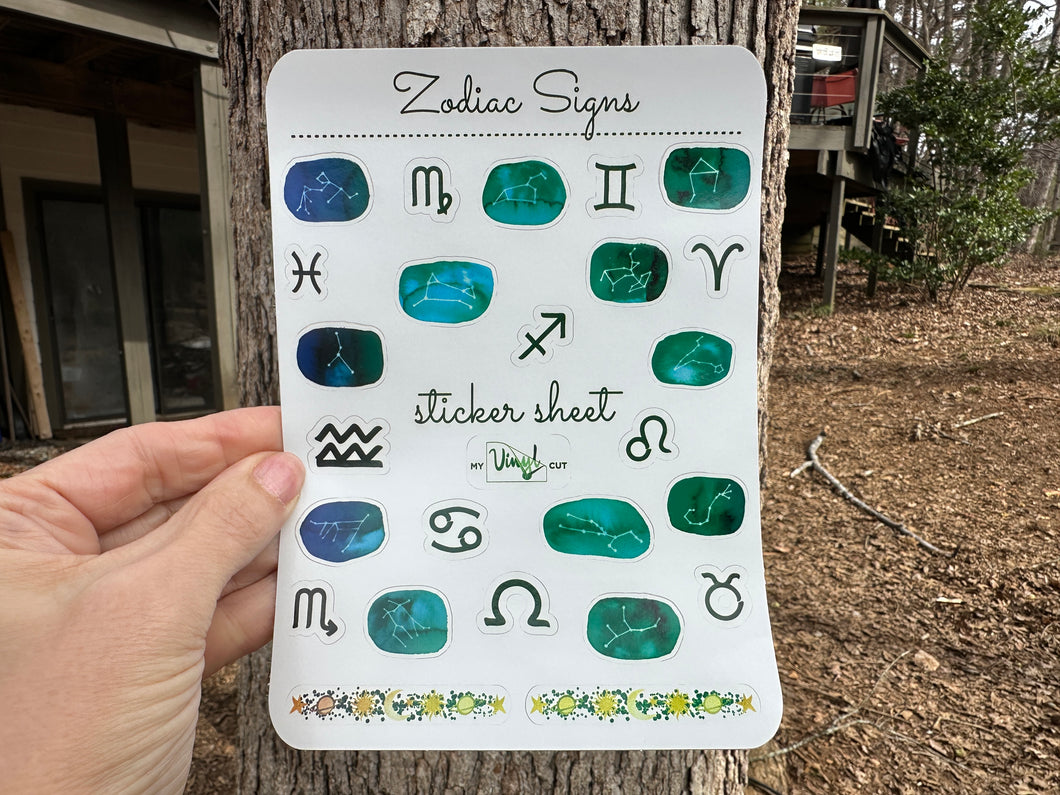 Zodiac Signs
sticker sheet
MY Vinyl CUT